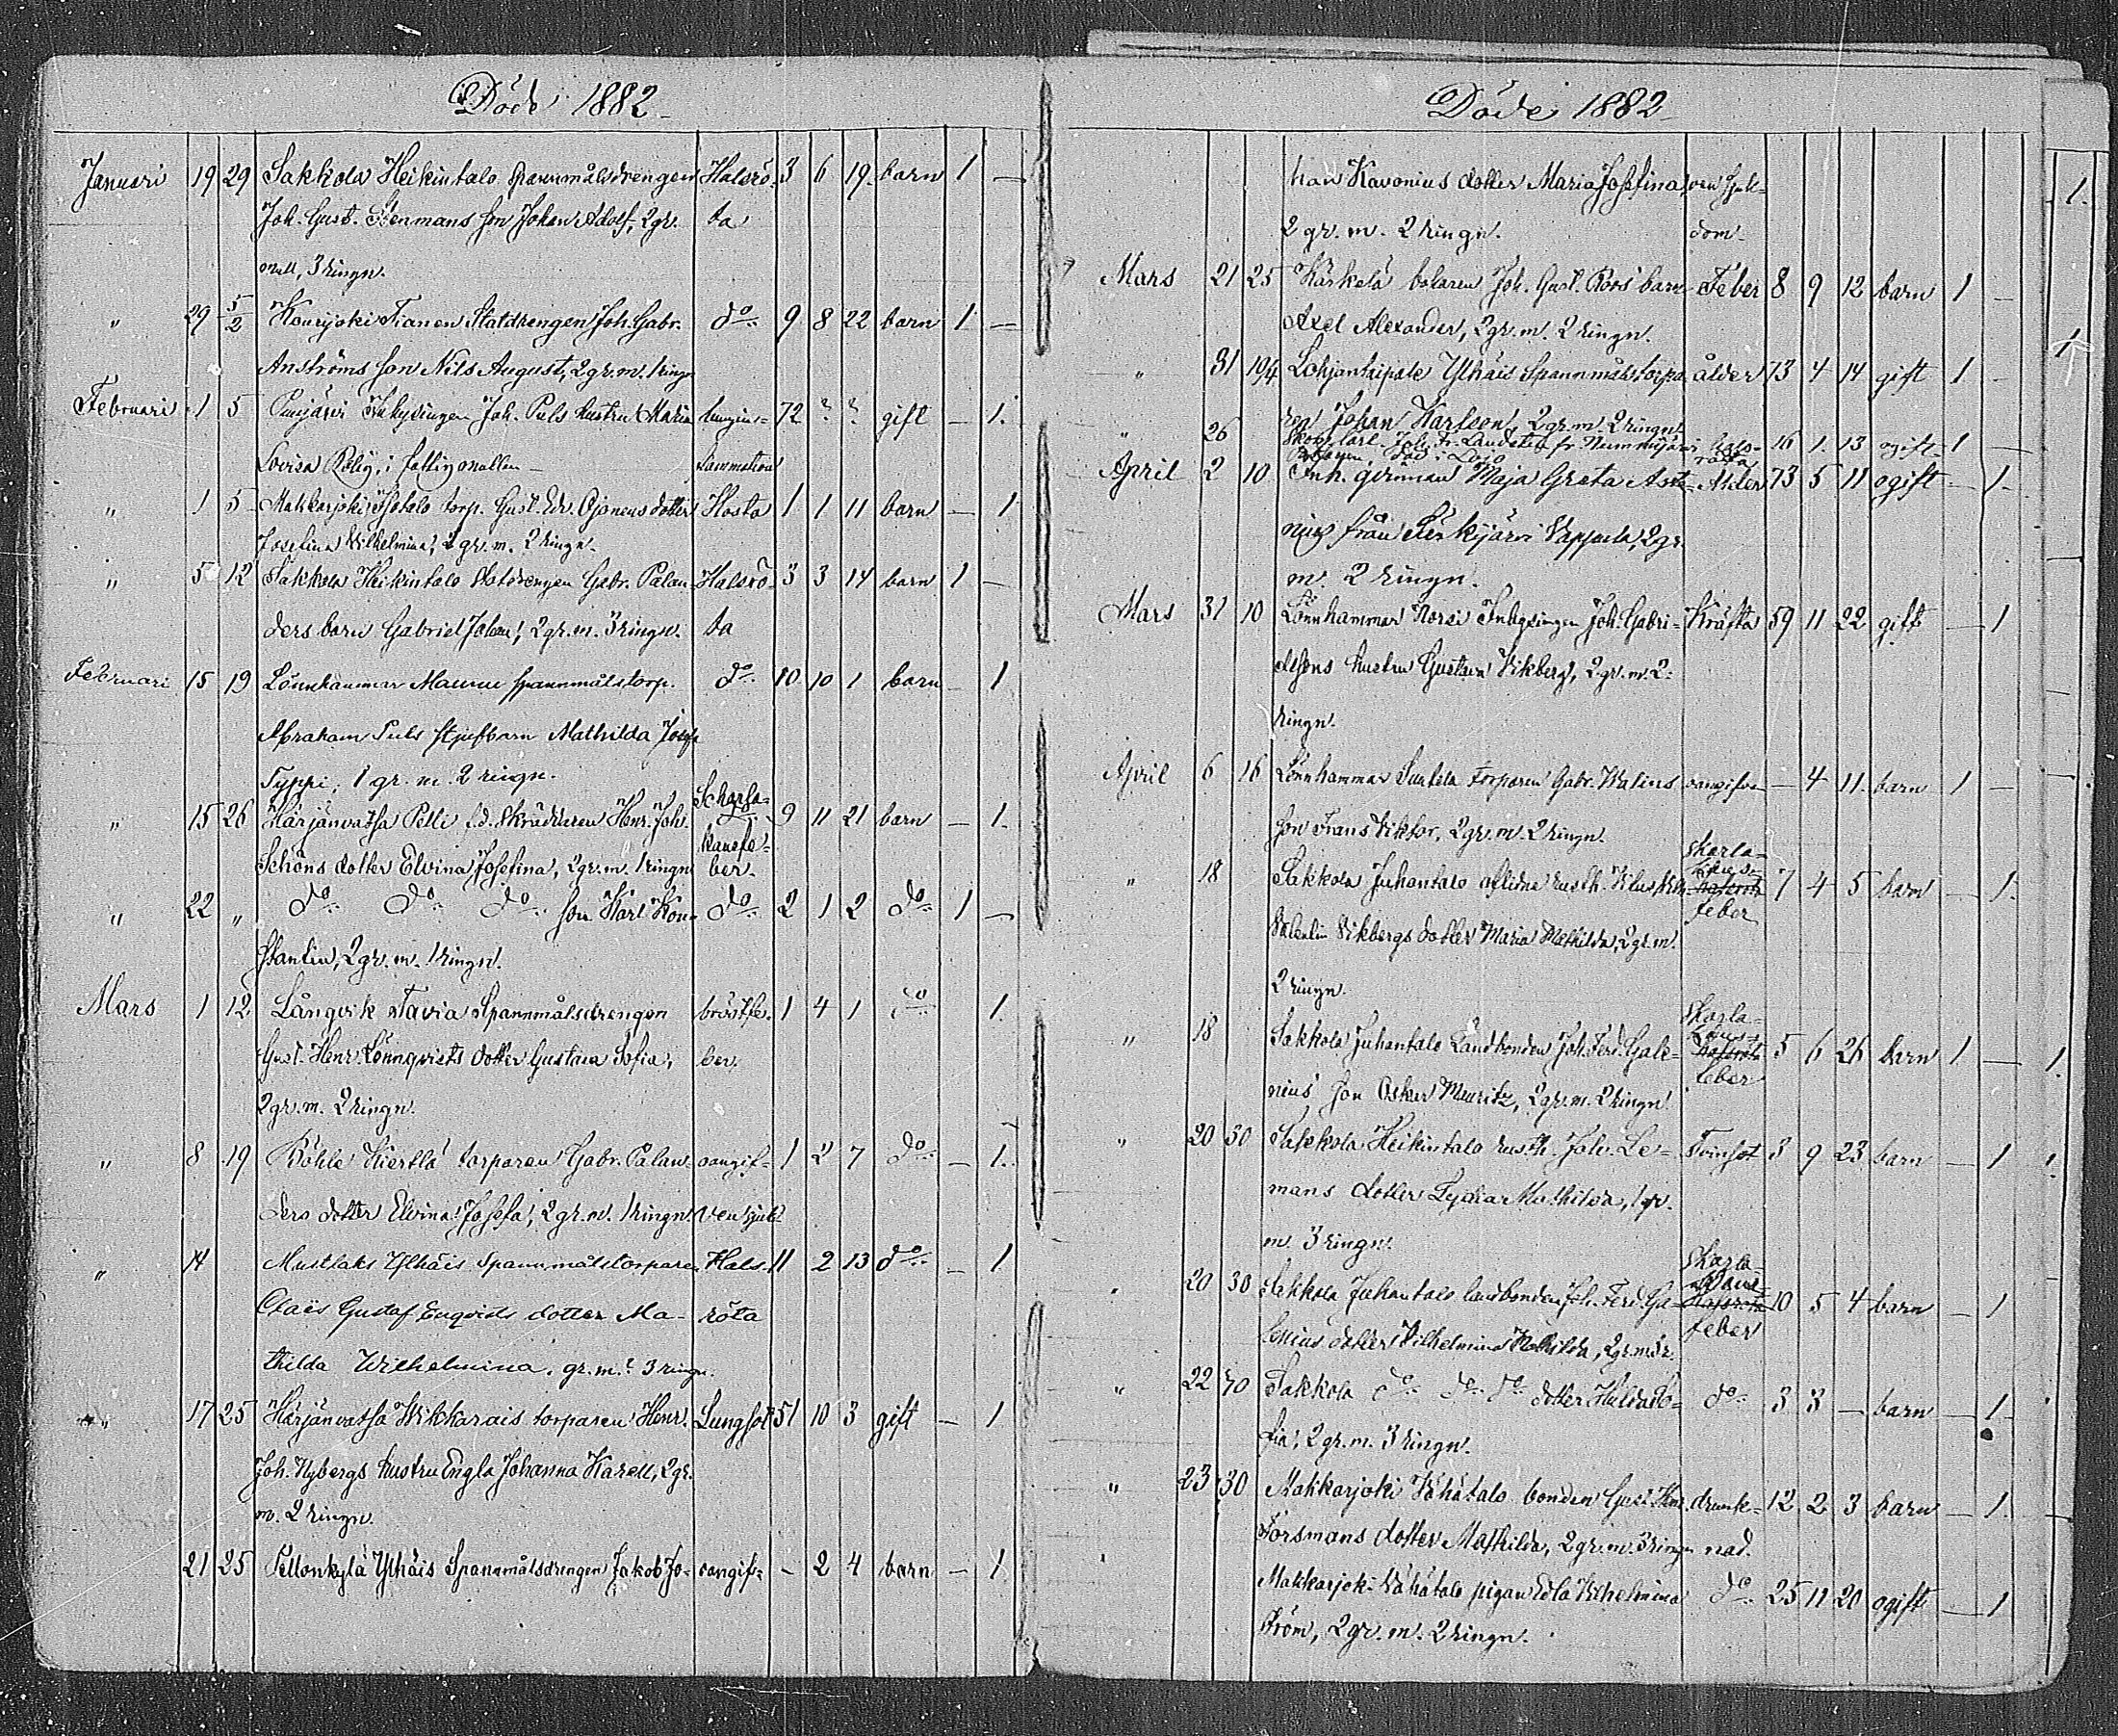 Döde 1882
Januari 19 29 Sakkola Heikintalo Spannmålsdrengen Halsrö- 3 6 19 barn 1 —
Joh. Gust. Stenmans son Johan Adolf, 2 gr. ta
mull, 3 ringn.
" 29 5/2 Kourjoki Tianen Statdrengen Joh. Gabr. do 9 8 22 barn 1 —
Anströms son Nils August, 2 gr. m. 1 ringn
Februari 1 5 Joh. Puls hustru Maria lungin- 72 ? ? gift — 1.
Lovisa i fattigmullen — flammation
" 1 5 Makkarjoki torp. Gust. Edv. Ojonens dotter Hosta 1 1 11 barn — 1
Josefina Vilhelmina, 2 gr. m. 2 ringn.
" 5 12 Sakkola Heikintalo Statdrengen Gabr. Palan- Halsrö- 3 3 14 barn 1 —
ders barn Gabriel Johan, 2 gr. m. 3 ringn. ta
Februari 15 19 Lönnhammar spannmålstorp. do 10 10 1 barn — 1
Abraham Puls styfbarn Mathilda Josefa
Typpi, 1 gr. m. 2 ringn.
" 15 26 Härjänvatsa Pelli f.d. Skräddaren Henr. Joh. Scharla- 9 11 21 barn — 1.
kansfe-
Schöns dotter Elvina Josefina, 2 gr. m. 1 ringn ber.
" 22 " do do do son Karl Kon- do 2 1 2 do 1 —
stantin, 2 gr. m. 1 ringn.
Mars 1 12 Långvik Tavia Spannmålsdrengen bröstfe- 1 4 1 do 1.
Gust. Henr. Lönnqvists dotter Gustava Sofia, ber.
2 gr. m. 2 ringn.
" 8 19 Böhle Kiertlä torparen Gabr. Palan- oangif- 1 2 7 do — 1.
ders dotter Elvina Josefa, 2 gr. m. 1 ringn. ven sjuk.
" 14 Mustlaks Ylhäis Spannmålstorparen Hals- 11 2 13 do — 1
Claës Gustaf Enqvists dotter Ma- röta
thilda Wilhelmina. gr. m. 3 ringn.
" 17 25 Härjänvatsa Wikkarais torparen Henr. Lungsot 51 10 3 gift — 1
Joh. Nybergs hustru Engla Johanna Karell, 2 gr.
m. 2 ringn.
21 25 Pellonkylä Ylhäis Spannmålsdrengen Jakob Jo- oangif- — 2 4 barn — 1
Döde 1882
han Kavonius dotter Maria Josefina, ven sjuk-
2 gr. m. 2 ringn. dom.
Mars 21 25 Kärkelä bolaren Joh. Gust. Roos barn Feber 8 9 12 barn 1 —
Axel Alexander, 2 gr. m. 2 ringn.
" 31 19/4 Lohjantaipale Ylhäis Spannmålstorpa- ålder 73 4 14 gift 1 —
ren Johan Karlson, 2 gr. m. 2 ringn.
" 26 Joh. Fr. fr. Nummijärvi Hals- 16 1. 13 ogift 1 —
död i Lojo röta
April 2 10 Inh. qvinnan Maja Greta Asto- Ålder 73 5 11 ogift — 1.
nius från 2 gr.
m. 2 ringn.
Mars 31 10 Lönnhammar Norsi Inhysingen Joh. Gabri- Kräfta 59 11 22 gift — 1
elssons hustru Gustava Vikberg, 2 gr. m. 2
ringn.
April 6 16 Lönnhammar torparen Gabr. Walins oangifven — 4 11. barn 1 —
son Frans Viktor, 2 gr. m. 2 ringn.
" 18 Sakkola Juhantalo aflidne rusth. Skarla- 7 4 5 barn — 1.
feber
Valentin Vikbergs dotter Maria Mathilda, 2 gr. m.
2 ringn.
" 18 Sakkola Juhantalo Landbonden Joh. Ferd. Gale- Skarla- 5 6 26 barn 1 —
feber
nius son Oskar Mauritz, 2 gr. m. 2 ringn.
" 20 30 Sakkola Heikintalo rusth. Joh. Le- Tvinsot 3 9 23 barn — 1
mans dotter Lydia Mathilda, 1 gr.
m. 3 ringn.
" 20 30 Sakkola Juhantalo landbonden Joh. Ferd. Ga- Skarla- 10 5 4 barn — 1
lenius dotter Vilhelmina Mathilda, 2 gr. m. feber
" 22 30 Sakkola do do do dotter Hulda So- do 3 3 — barn — 1.
fia, 2 gr. m. 3 ringn.
" 23 30 Makkarjoki Vähätalo bonden Gust. Henr. drunk- 12 2 3 barn — 1.
Forsmans dotter Mathilda, 2 gr. m. 3 ringn nad.
Makkarjoki Vähätalo pigan Edla Wilhelmina do 25 11 20 ogift — 1
Ström, 2 gr. m. 2 ringn.